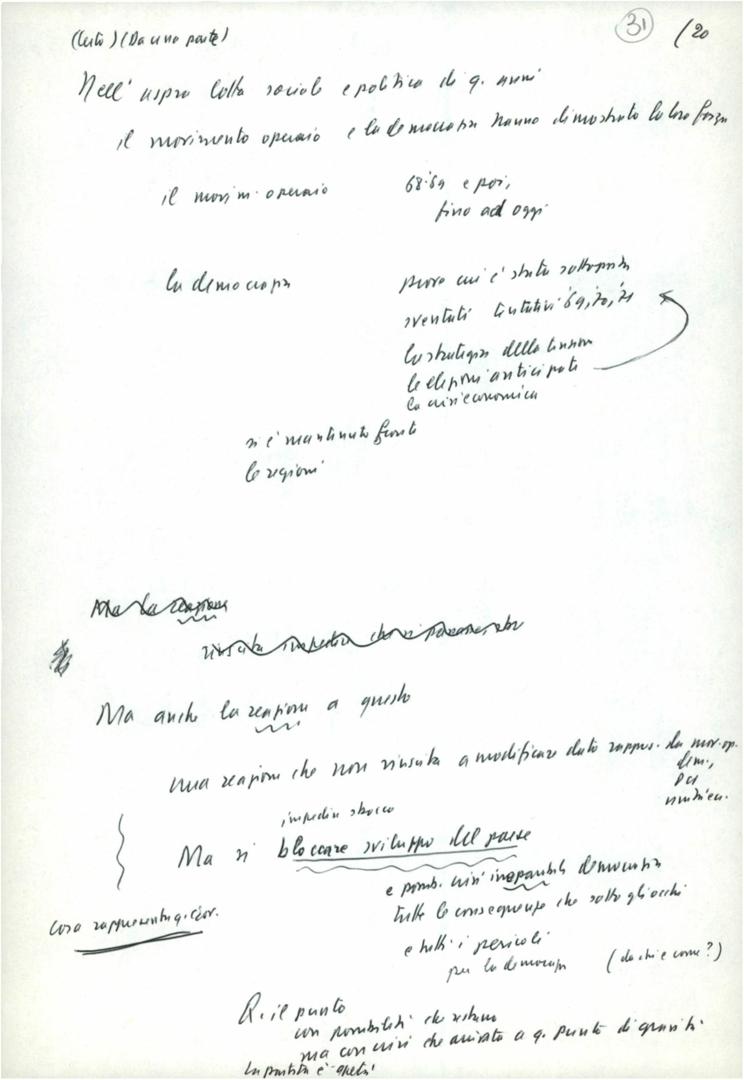 (Certo) (Da una parte)
31
/20
Nell' aspra lotta sociale e politica di q. anni
il movimento operaio e la democrazia hanno dimostrato la loro forza
il movim. operaio
68-69 e poi,
fino ad oggi
la democrazia
prove cui è stata sottoposta
sventati tentativi '69, '70, '71
la strategia della tensione
le elezioni anticipate
la crisi economica
si è mantenuto fronte
le regioni
Ma la reazione
riuscita impedire che si
Ma anche la reazione a questo
una reazione che non riuscita a modificare dato rappres. da mov. op.
dem.,
PCI
sindac.
impedire sbocco
Ma si bloccare sviluppo del paese
e possib. crisi democrazia
tutte le conseguenze che sotto gli occhi
cosa rappresenta q.
e tutti i pericoli
per la democraz (da chi e come?)
Q. il punto
con possibilità che restano
ma con crisi che arrivata a q. punto di gravità
La partita è aperta!